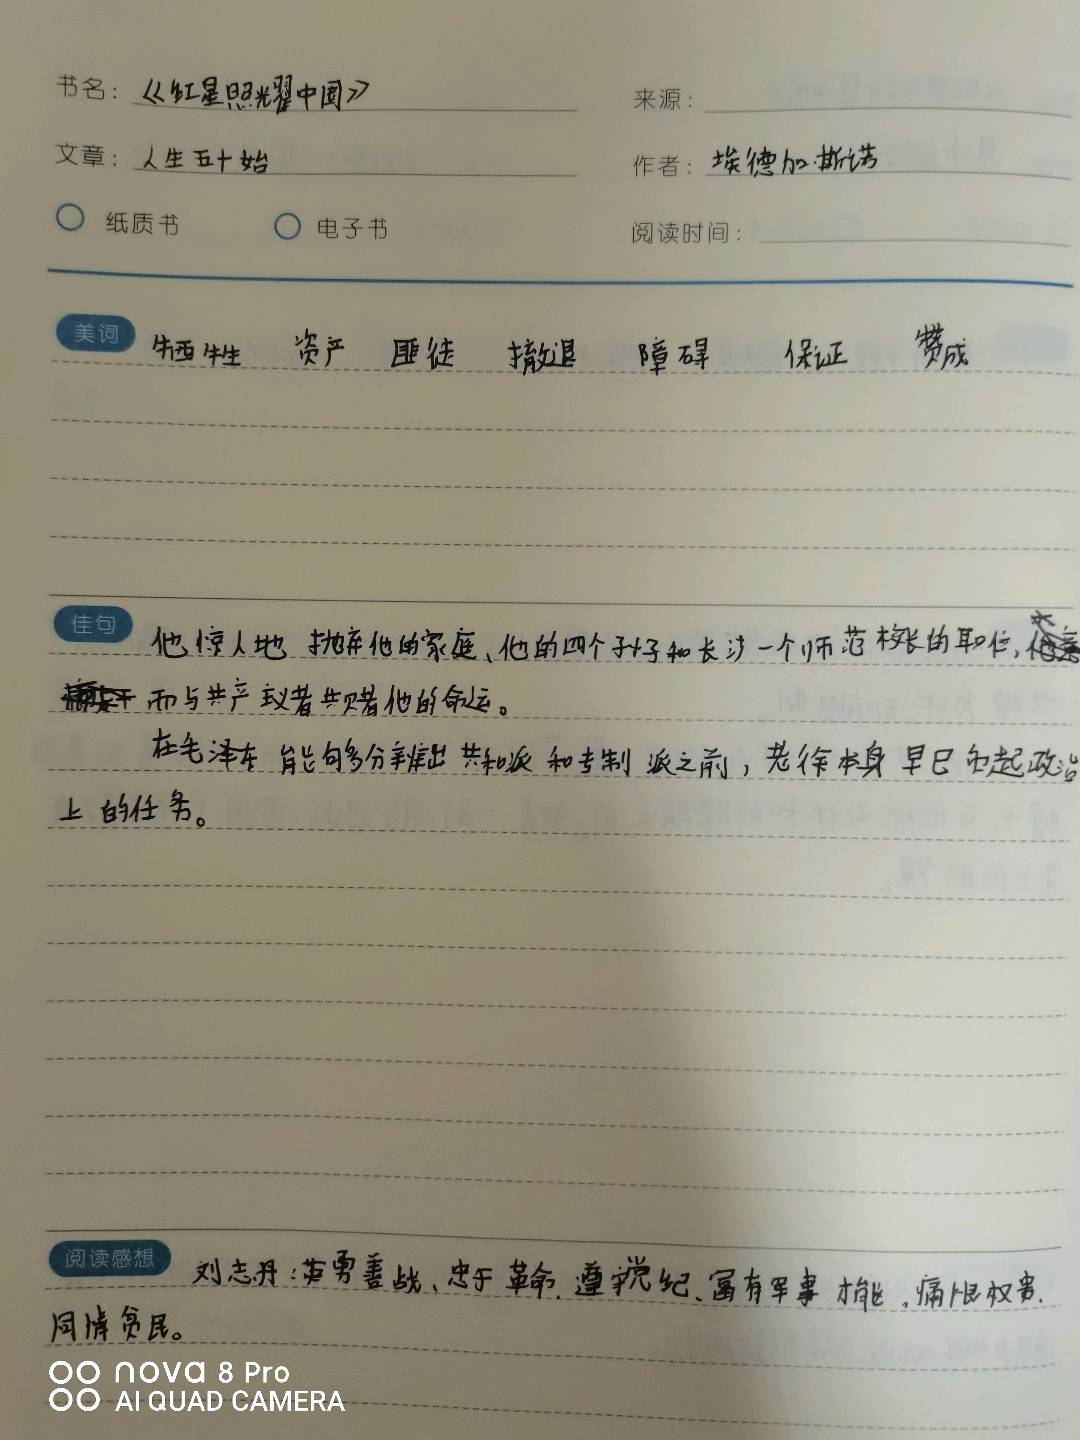 书名：《红星照耀中国》 来源：
文章：人生五十始 作者：埃德加·斯诺
纸质书 电子书 阅读时间：
美词 牺牲 资产 匪徒 撤退 障碍 保证 赞成
佳句 他惊人地抛弃他的家庭、他的四个孩子和长沙一个师范校长的职位，
而与共产主义者共赌他的命运。
在毛泽东能够多分辨出共和派和专制派之前，老徐本身早已负起政治
上的任务。
阅读感想 刘志丹：英勇善战、忠于革命、遵守党纪、富有军事才能，痛恨权贵、
同情贫民。
nova 8 Pro
AI QUAD CAMERA